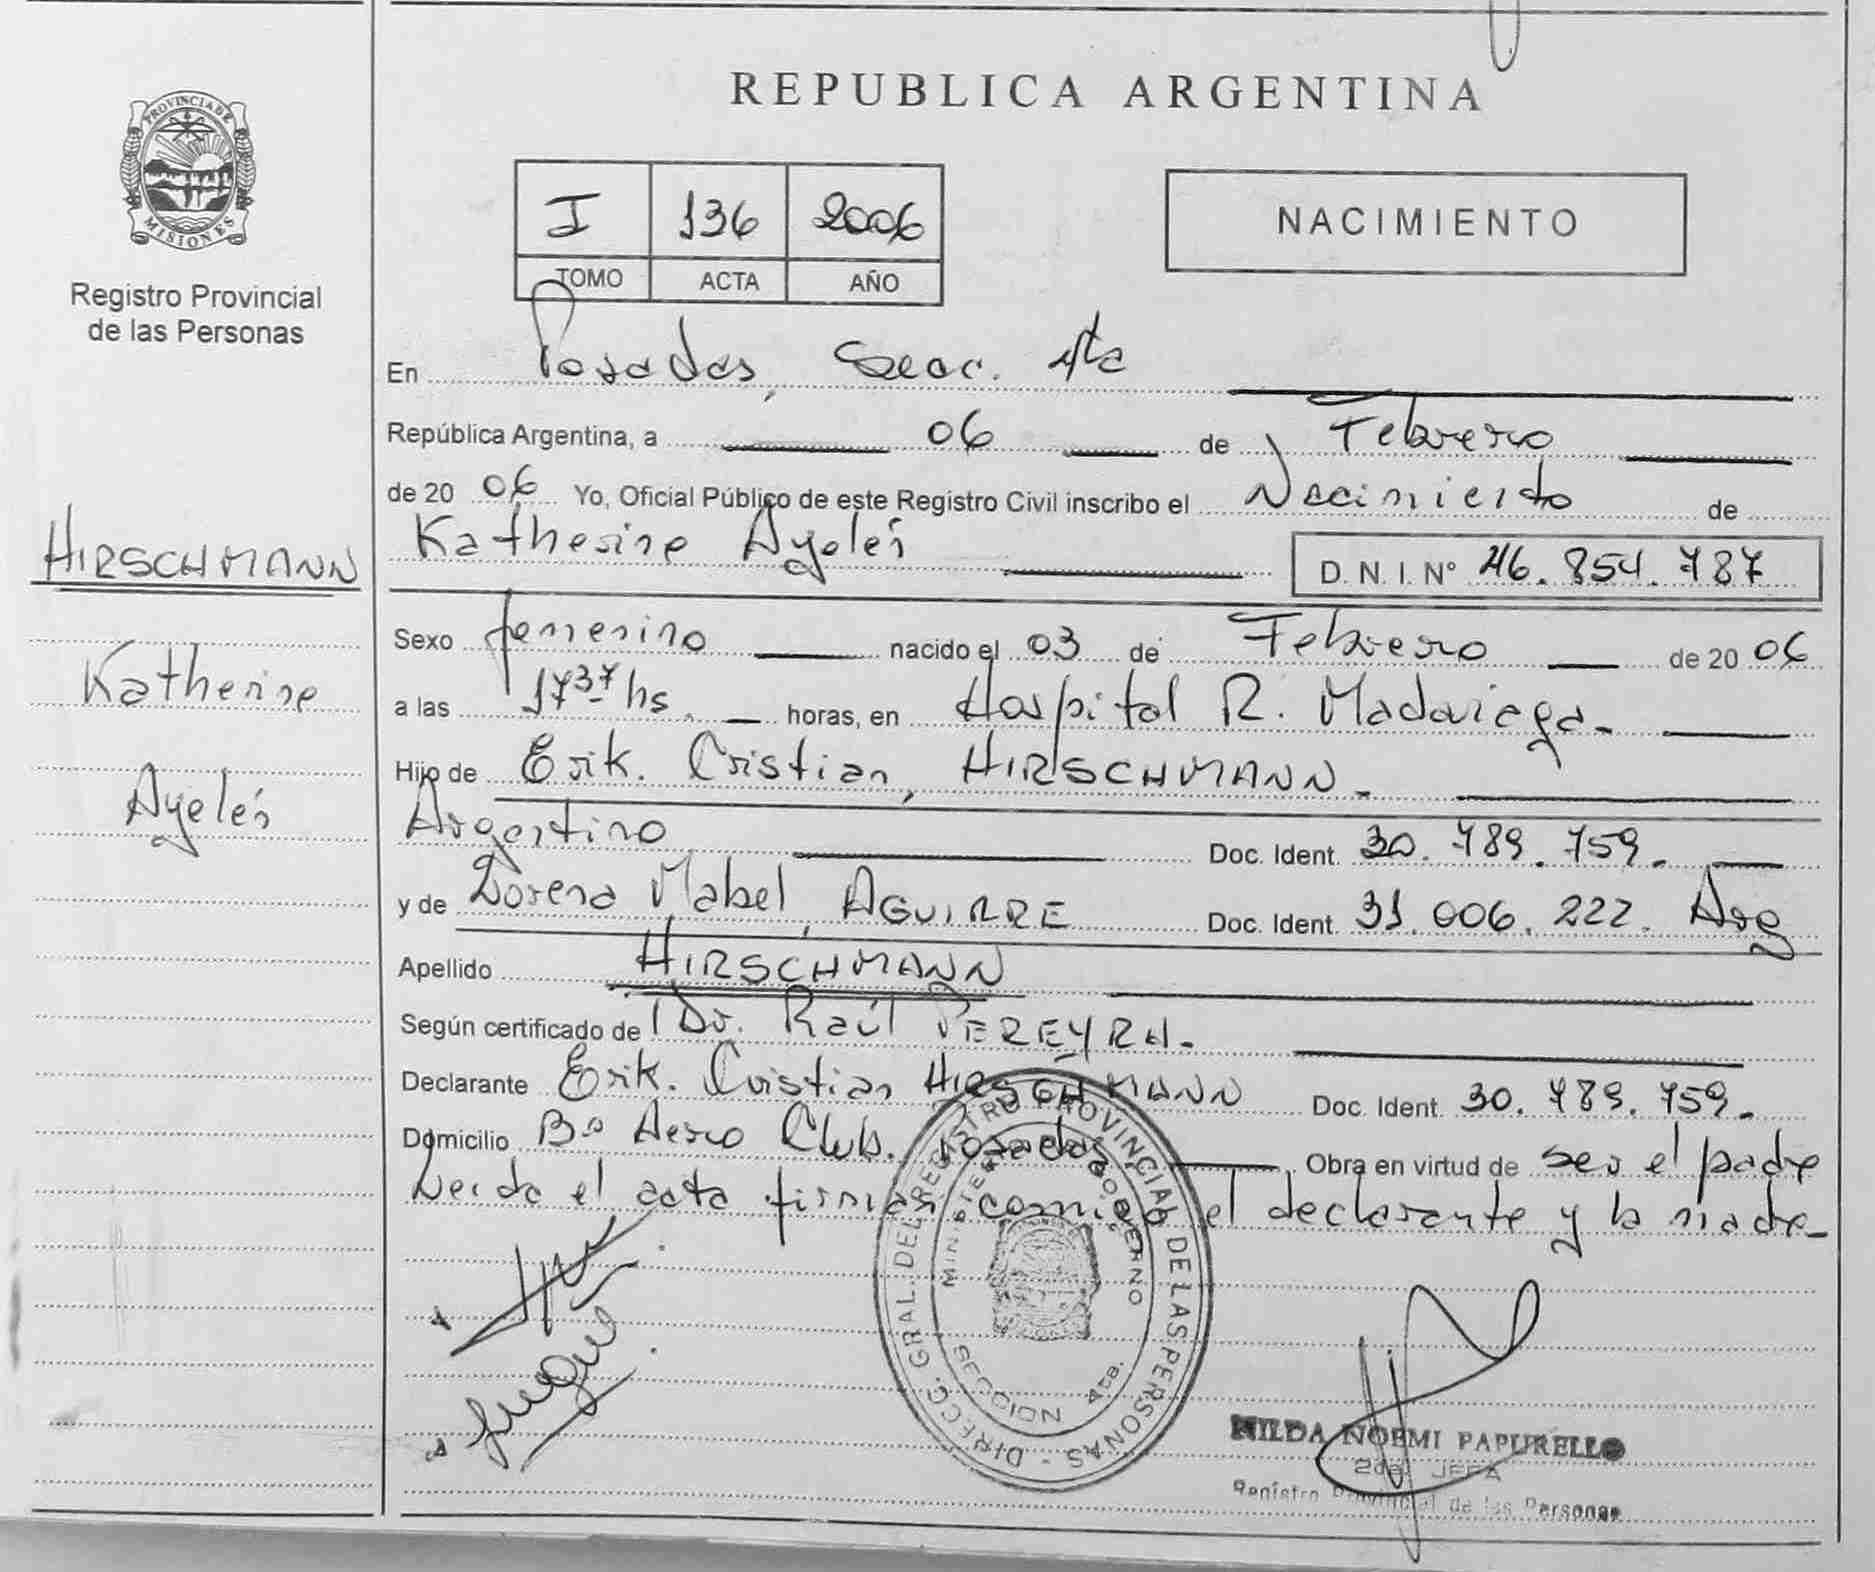 REPUBLICA ARGENTINA
PROVINCIA DE MISIONES
Registro Provincial
de las Personas
I 136 2006
TOMO ACTA AÑO
NACIMIENTO
En Posadas, Secc. 4ta
República Argentina, a 06 de Febrero
de 20 06 Yo, Oficial Público de este Registro Civil inscribo el Nacimiento de
Katherine Ayelén D. N. I. Nº 46. 854. 787
HIRSCHMANN
Katherine
Ayelén
Sexo femenino nacido el 03 de Febrero de 20 06
a las 17 37 hs. horas, en Hospital R. Madariaga.
Hijo de Erik. Cristian, HIRSCHMANN.
Argentino Doc. Ident. 30. 789. 759.
y de Lorena Mabel, AGUIRRE Doc. Ident. 31. 006. 222. Arg
Apellido HIRSCHMANN
Según certificado de Dr. Raúl PEREYRA.
Declarante Erik. Cristian HIRSCHMANN Doc. Ident. 30. 789. 759.
Domicilio Bº Aero Club. Posadas Obra en virtud de ser el padre
Leida el acta firman conmigo el declarante y la madre
DIRECC. GRAL. DEL REGISTRO PROVINCIAL DE LAS PERSONAS
MINISTERIO DE GOBIERNO
SECCION 4ta.
NILDA NOEMI PAPURELLO
2da. JEFA
Registro Provincial de las Personas